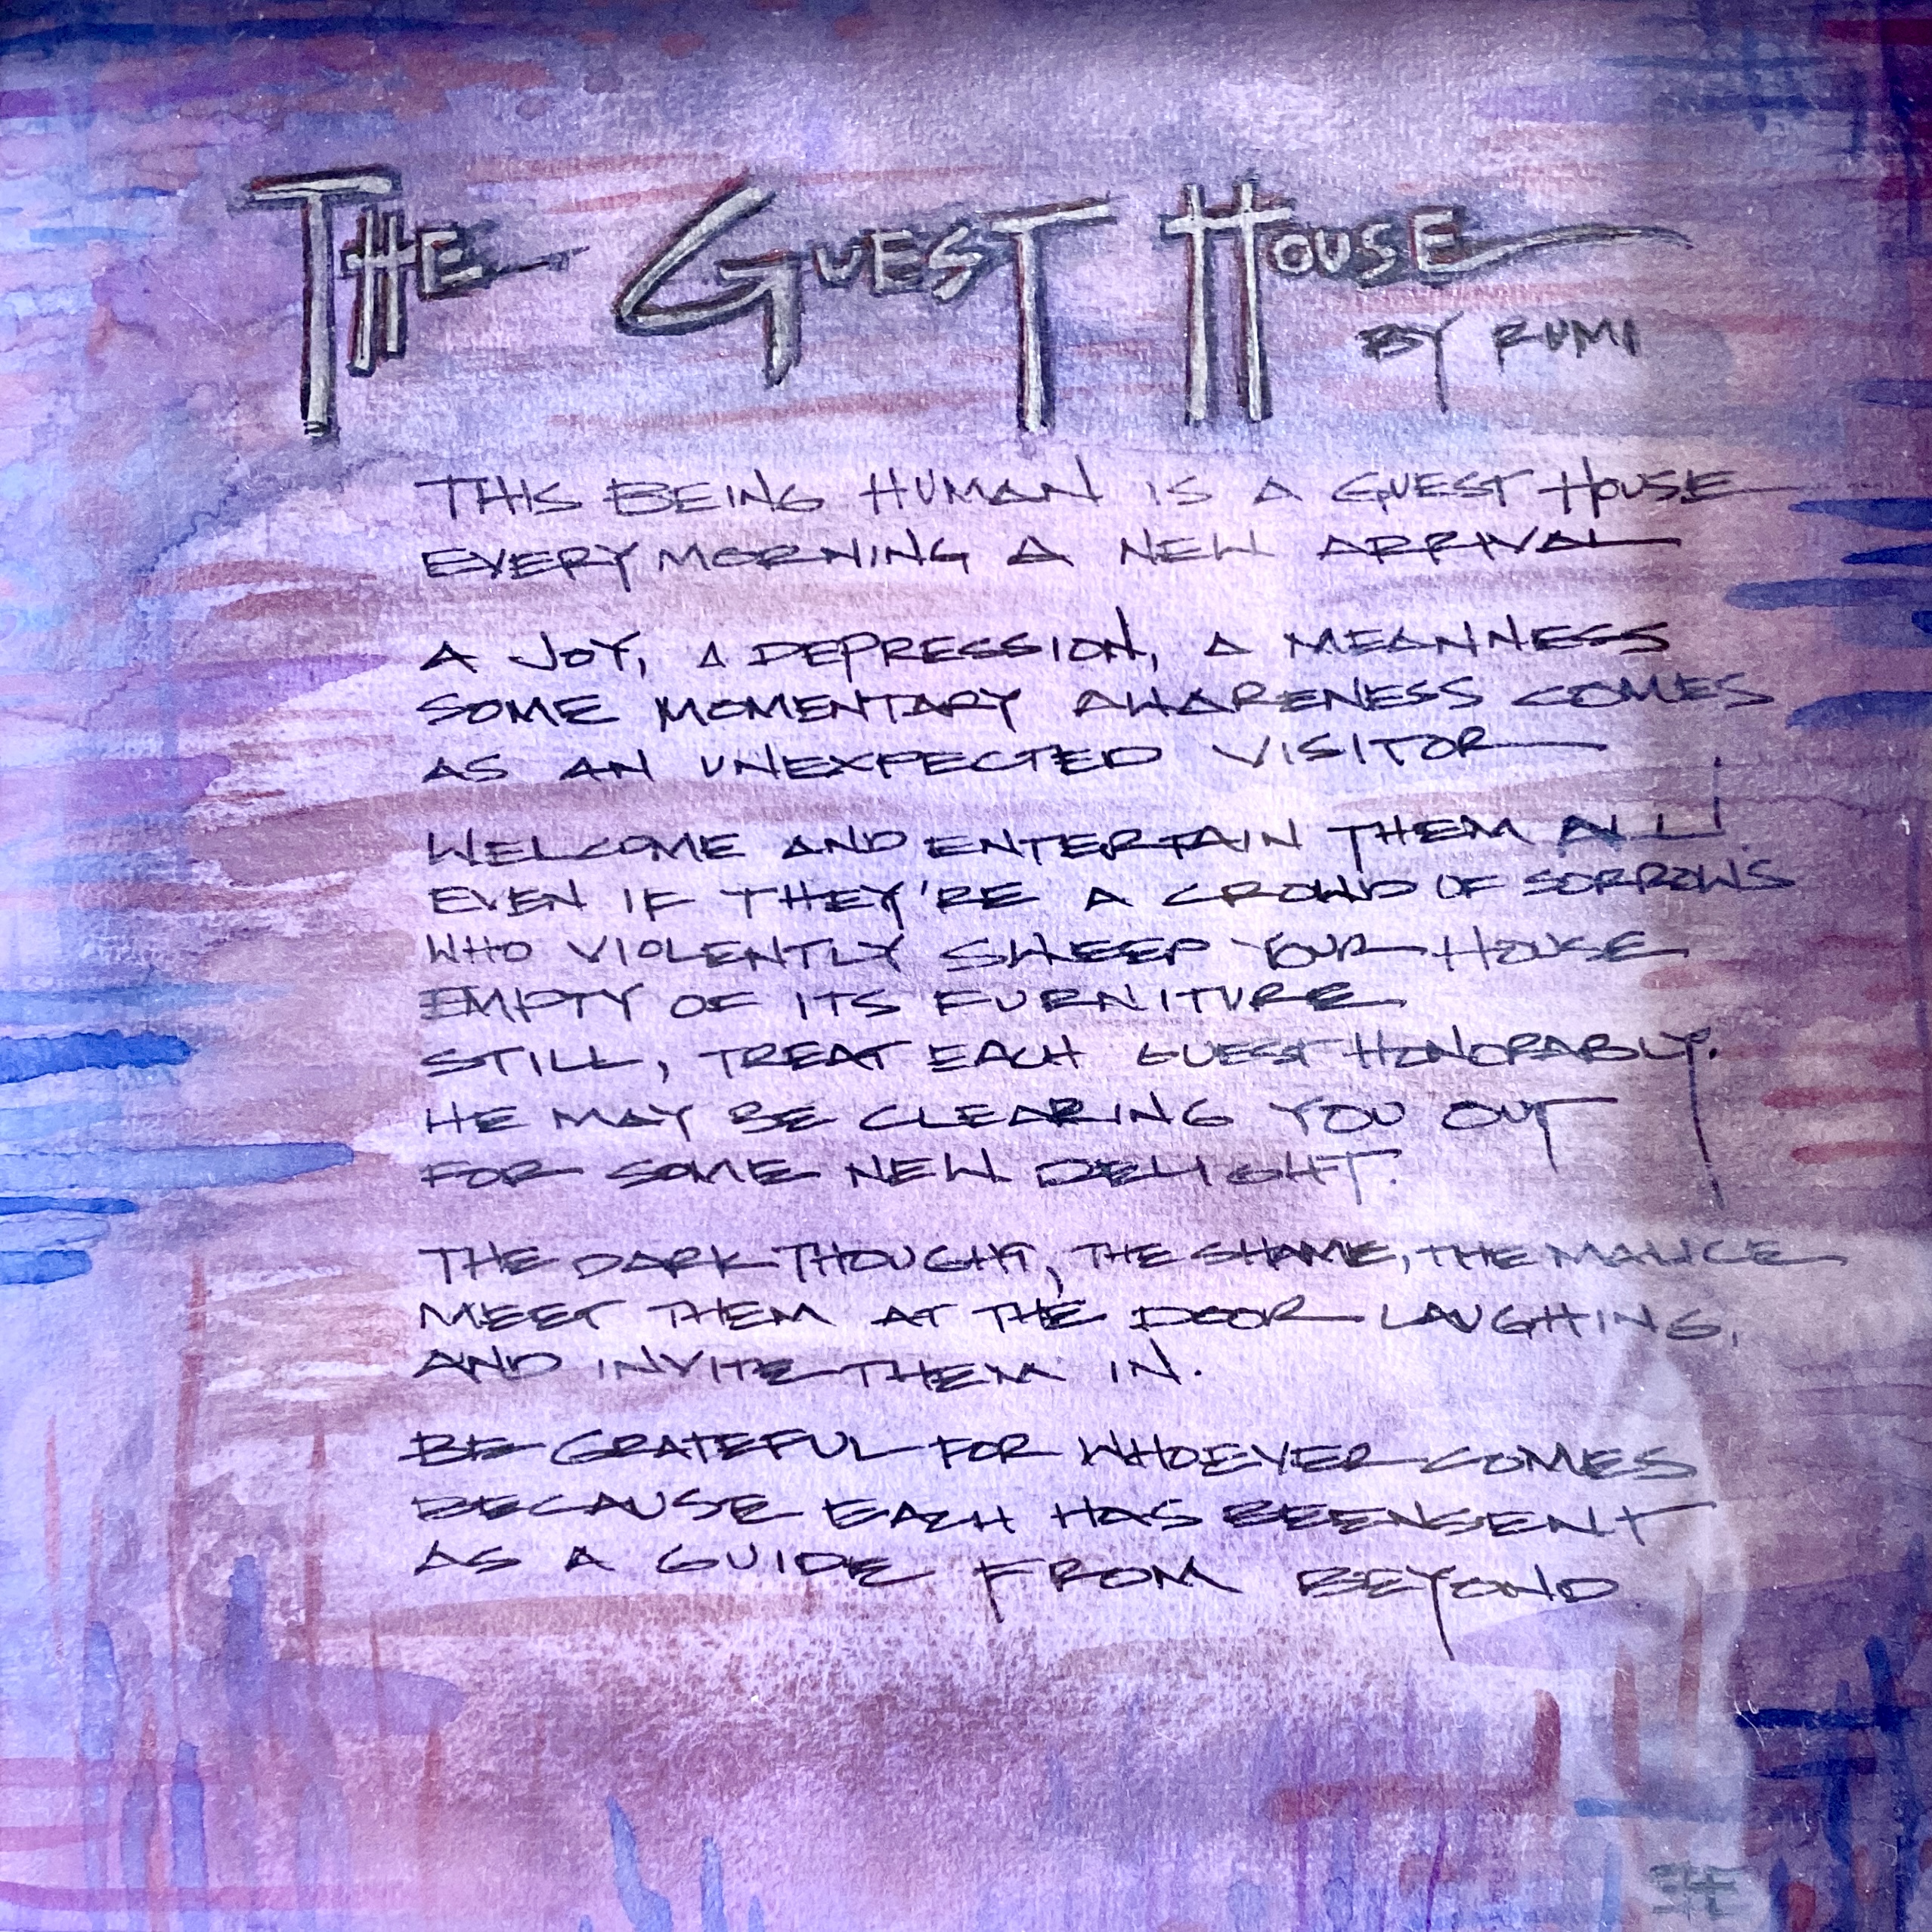 THE GUEST HOUSE
BY RUMI
THIS BEING HUMAN IS A GUEST HOUSE
EVERY MORNING A NEW ARRIVAL
A JOY, A DEPRESSION, A MEANNESS
SOME MOMENTARY AWARENESS COMES
AS AN UNEXPECTED VISITOR
WELCOME AND ENTERTAIN THEM ALL!
EVEN IF THEY'RE A CROWD OF SORROWS
WHO VIOLENTLY SWEEP YOUR HOUSE
EMPTY OF ITS FURNITURE
STILL, TREAT EACH GUEST HONORABLY.
HE MAY BE CLEARING YOU OUT
FOR SOME NEW DELIGHT.
THE DARK THOUGHT, THE SHAME, THE MALICE
MEET THEM AT THE DOOR LAUGHING,
AND INVITE THEM IN.
BE GRATEFUL FOR WHOEVER COMES
BECAUSE EACH HAS BEEN SENT
AS A GUIDE FROM BEYOND